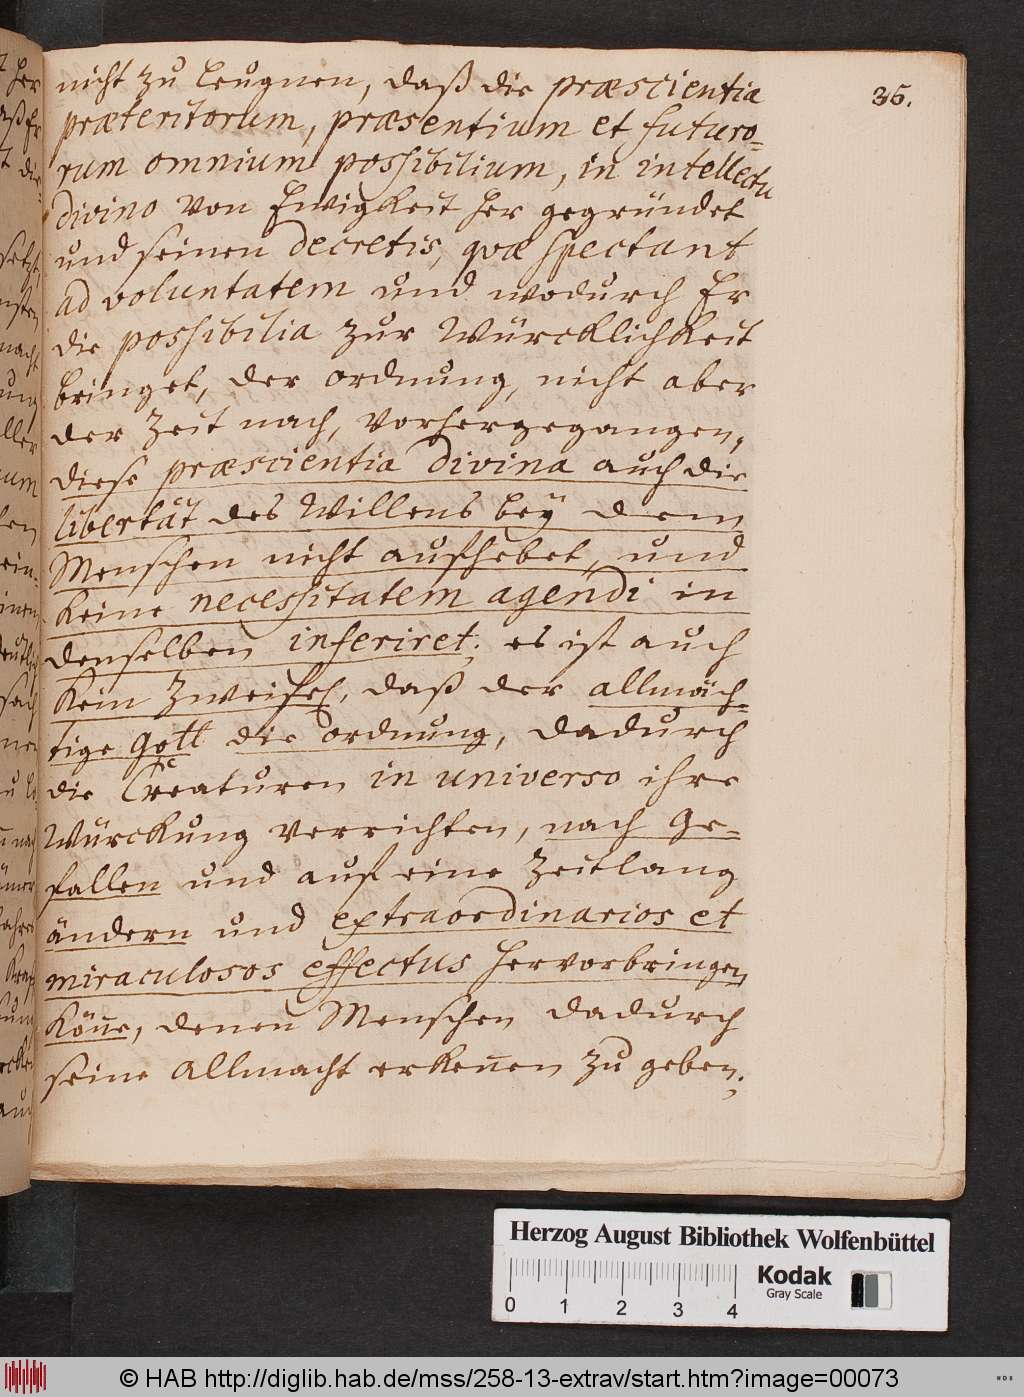 35.
nicht zu leugnen, daß die præscientia
præteritorum, præsentium et futuro-
rum omnium possibilium, in intellectu
divino von Ewigkeit her gegründet
und seinen decretis, qvæ spectant
ad voluntatem und wodurch Er
die possibilia zur Würcklichkeit
bringet, der ordnung, nicht aber
der Zeit nach, vorhergegangen,
diese præscientia divina auch die
libertät des Willens bey dem
Menschen nicht aufhebet, und
keine necessitatem agendi in
denselben inferiret; es ist auch
kein Zweifel, daß der allmäch-
tige Gott die ordnung, dadurch
die Creaturen in universo ihre
Würckung verrichten, nach Ge-
fallen und auf eine Zeitlang
ändern und extraordinarios et
miraculosos effectus hervorbringen
könne, denen Menschen dadurch
seine Allmacht erkennen zu geben;
Herzog August Bibliothek Wolfenbüttel
Kodak
Gray Scale
0 1 2 3 4
© HAB http://diglib.hab.de/mss/258-13-extrav/start.htm?image=00073